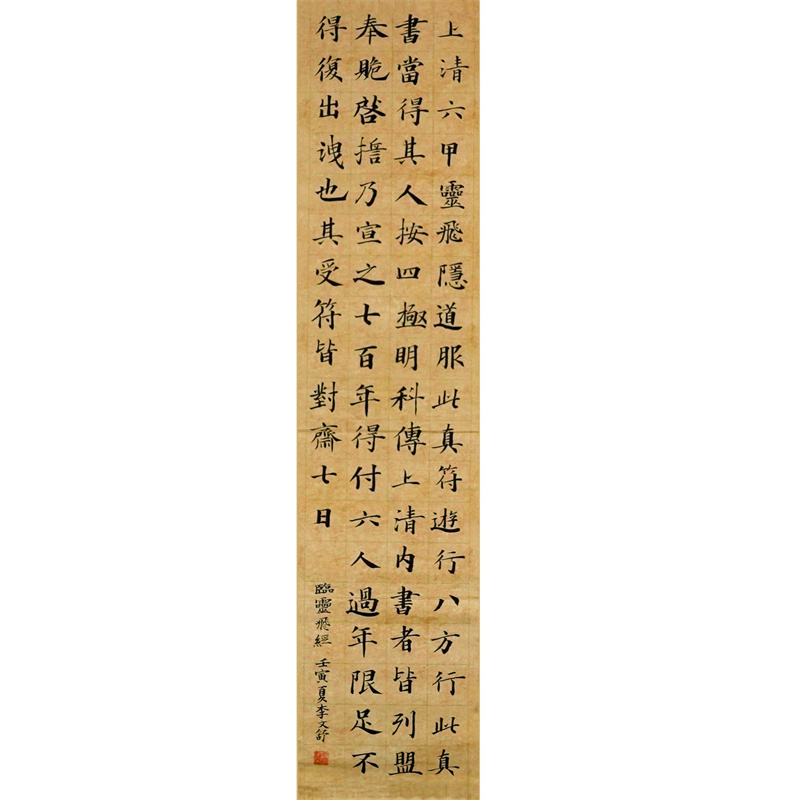 上清六甲靈飛隱道服此真符遊行八方行此真
書當得其人按四極明科傳上清內書者皆列盟
奉贍啓擔乃宣之七百年得付六人過年限足不
得復出洩也其受符皆對齋七日
臨靈飛經 壬寅夏李文舒